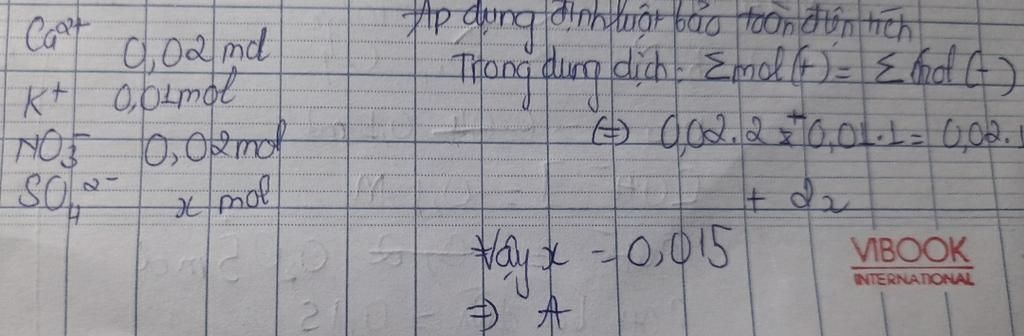 Ca²⁺ 0,02 mol
K⁺ 0,01mol
NO₃⁻ 0,02mol
SO₄²⁻ x mol
Áp dụng định luật bảo toàn điện tích
Trong dung dịch: Σmol(+) = Σmol(-)
(=) 0,02.2 + 0,01.1 = 0,02.1
+ 2x
Vậy x = 0,015
=> A
VIBOOK
INTERNATIONAL